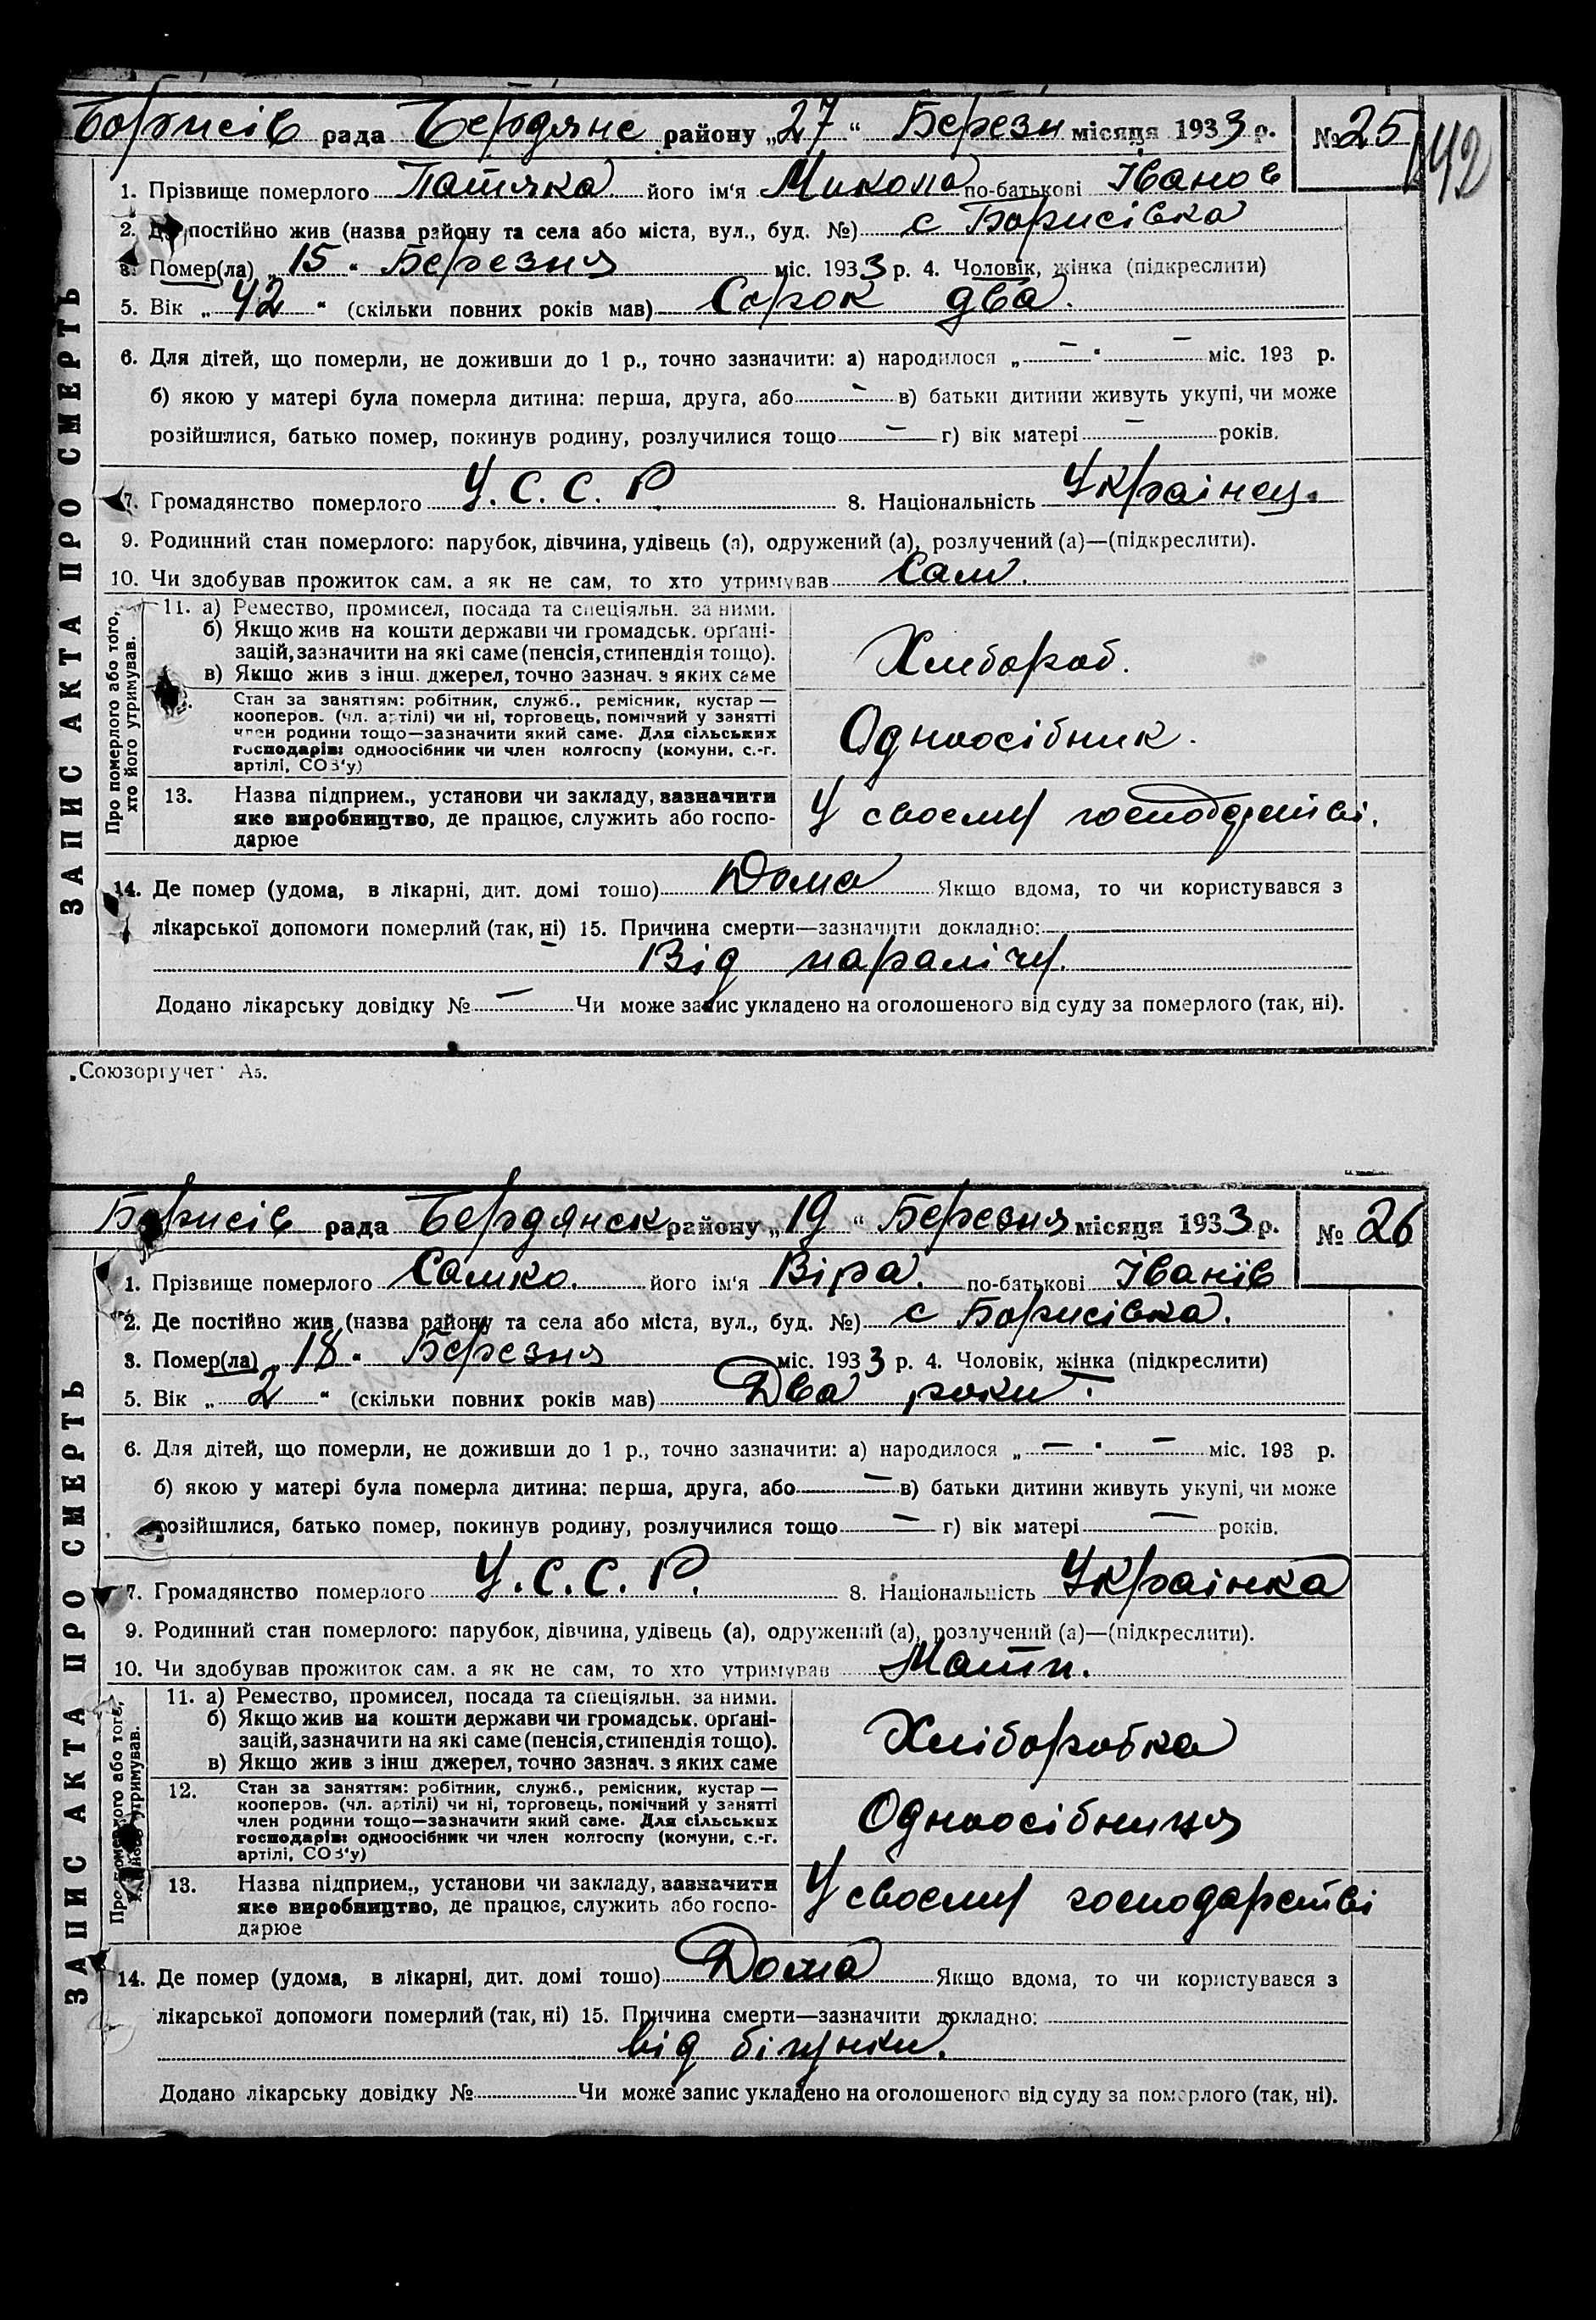 Борисів рада Бердянс району „27“ Березн місяця 1933 р. № 25
142
1. Прізвище померлого Патяка його ім'я Микола по-батькові Іванов
2. Де постійно жив (назва району та села або міста, вул., буд. №) с Борисівка
3. Помер(ла) „15“ Березня міс. 1933 р. 4. Чоловік, жінка (підкреслити)
5. Вік „42“ (скільки повних років мав) Сорок два.
6. Для дітей, що померли, не доживши до 1 р., точно зазначити: а) народилося „—“ — міс. 193 р.
б) якою у матері була померла дитина: перша, друга, або — в) батьки дитини живуть укупі, чи може
розійшлися, батько помер, покинув родину, розлучилися тощо — г) вік матері — років.
7. Громадянство померлого У.С.С.Р. 8. Національність Українец.
9. Родинний стан померлого: парубок, дівчина, удівець (а), одружений (а), розлучений (а)—(підкреслити).
10. Чи здобував прожиток сам. а як не сам, то хто утримував Сам.
Про померлого або того, хто його утримував.
11. а) Ремество, промисел, посада та спеціяльн. за ними.
б) Якщо жив на кошти держави чи громадськ. органі-
зацій, зазначити на які саме (пенсія, стипендія тощо).
в) Якщо жив з інш. джерел, точно зазнач. з яких саме
Хлибороб.
Стан за заняттям: робітник, служб., ремісник, кустар —
кооперов. (чл. артілі) чи ні, торговець, помічний у занятті
член родини тощо—зазначити який саме. Для сільських
господарів: одноосібник чи член колгоспу (комуни, с.-г.
артілі, СОЗ'у)
Одноосібник.
13. Назва підприєм., установи чи закладу, зазначити
яке виробництво, де працює, служить або госпо-
дарює
У своєму господарстві.
14. Де помер (удома, в лікарні, дит. домі тошо) Дома Якщо вдома, то чи користувався з
лікарської допомоги померлий (так, ні) 15. Причина смерти—зазначити докладно:
Від паралічу.
Додано лікарську довідку № — Чи може запис укладено на оголошеного від суду за померлого (так, ні).
ЗАПИС АКТА ПРО СМЕРТЬ
„Союзоргучет“ А5.
Борисів рада Бердянск району „19“ Березня місяця 1933 р. № 26
1. Прізвище померлого Самко. його ім'я Віра. по-батькові Іванів
2. Де постійно жив (назва району та села або міста, вул., буд. №) с Борисівка.
3. Помер(ла) „18“ Березня міс. 1933 р. 4. Чоловік, жінка (підкреслити)
5. Вік „2“ (скільки повних років мав) Два роки.
6. Для дітей, що померли, не доживши до 1 р., точно зазначити: а) народилося „—“ — міс. 193 р.
б) якою у матері була померла дитина: перша, друга, або — в) батьки дитини живуть укупі, чи може
розійшлися, батько помер, покинув родину, розлучилися тощо — г) вік матері — років.
7. Громадянство померлого У.С.С.Р. 8. Національність Українка
9. Родинний стан померлого: парубок, дівчина, удівець (а), одружений (а), розлучений (а)—(підкреслити).
10. Чи здобував прожиток сам. а як не сам, то хто утримував Мати.
Про померлого або того, хто його утримував.
11. а) Ремество, промисел, посада та спеціяльн. за ними.
б) Якщо жив на кошти держави чи громадськ. органі-
зацій, зазначити на які саме (пенсія, стипендія тощо).
в) Якщо жив з інш джерел, точно зазнач. з яких саме
Хліборобка
12. Стан за заняттям: робітник, служб., ремісник, кустар —
кооперов. (чл. артілі) чи ні, торговець, помічний у занятті
член родини тощо—зазначити який саме. Для сільських
господарів: одноосібник чи член колгоспу (комуни, с.-г.
артілі, СОЗ'у)
Одноосібниця
13. Назва підприєм., установи чи закладу, зазначити
яке виробництво, де працює, служить або госпо-
дарює
У своєму господарстві
14. Де помер (удома, в лікарні, дит. домі тошо) Дома Якщо вдома, то чи користувався з
лікарської допомоги померлий (так, ні) 15. Причина смерти—зазначити докладно:
від бішунки.
Додано лікарську довідку № Чи може запис укладено на оголошеного від суду за померлого (так, ні).
ЗАПИС АКТА ПРО СМЕРТЬ